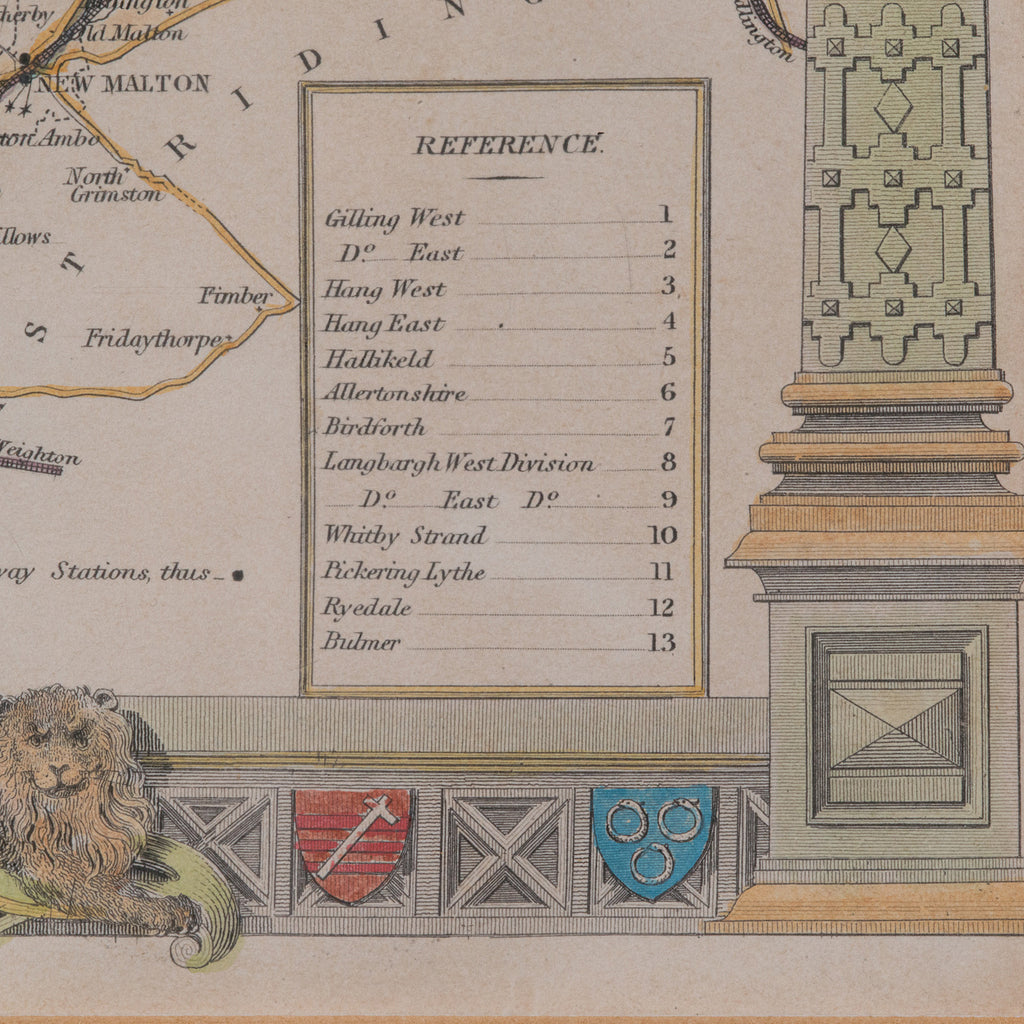 Old Malton
NEW MALTON
Ambo
North
Grimston
R I D I N
S T
Fimber
Fridaythorpe
Weighton
Stations, thus
REFERENCE.
Gilling West 1
Do. East 2
Hang West 3
Hang East 4
Hallikeld 5
Allertonshire 6
Birdforth 7
Langbargh West Division 8
Do. East Do. 9
Whitby Strand 10
Pickering Lythe 11
Ryedale 12
Bulmer 13